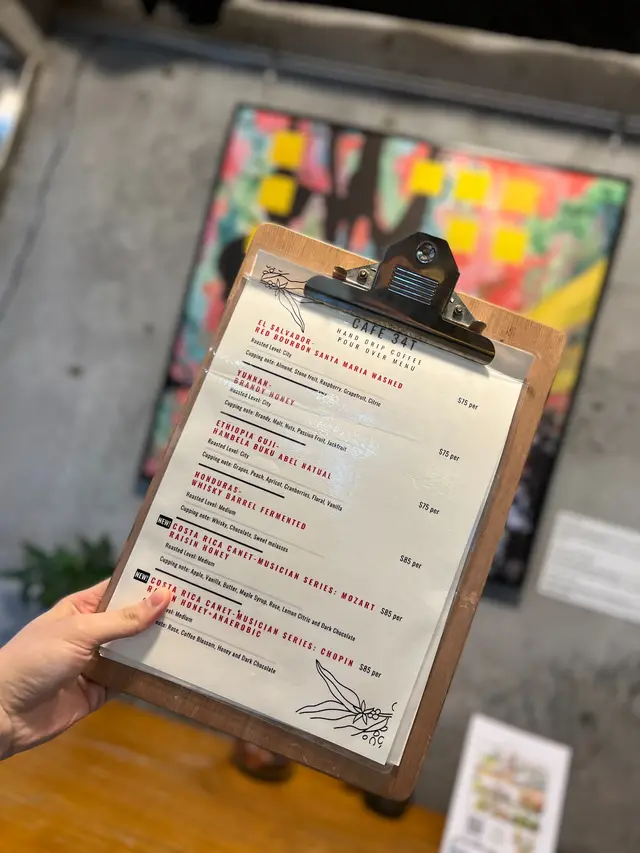 CAFE 34T
HAND DRIP COFFEE
POUR OVER MENU
EL SALVADOR-
RED BOURBON SANTA MARIA WASHED
Roasted Level: City
Cupping note: Almond, Stone fruit, Raspberry, Grapefruit, Citric
$75 per
YUNNAN-
BRANDY HONEY
Roasted Level: City
Cupping note: Brandy, Malt, Nuts, Passion Fruit, Jackfruit
$75 per
ETHIOPIA GUJI-
HAMBELA BUKU ABEL NATUAL
Roasted Level: City
Cupping note: Grapes, Peach, Apricot, Cranberries, Floral, Vanilla
$75 per
HONDURAS-
WHISKY BARREL FERMENTED
Roasted Level: Medium
Cupping note: Whisky, Chocolate, Sweet molasses
$85 per
NEW! COSTA RICA CANET-MUSICIAN SERIES: MOZART
RAISIN HONEY
Roasted Level: Medium
Cupping note: Apple, Vanilla, Butter, Maple Syrup, Rose, Lemon Citric and Dark Chocolate
$85 per
NEW! COSTA RICA CANET-MUSICIAN SERIES: CHOPIN
HONEY+ANAEROBIC
Medium
note: Rose, Coffee Blossom, Honey and Dark Chocolate
$85 per